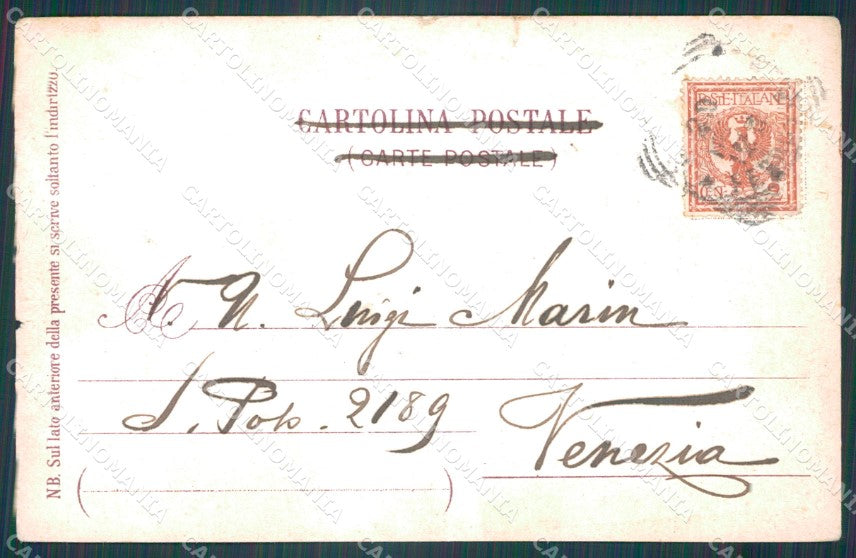 CARTOLINA POSTALE
(CARTE POSTALE)
POSTE ITALIANE
CEN. 2
N. N. Luigi Marin
S. Polo. 2189
Venezia
NB. Sul lato anteriore della presente si scrive soltanto l'indirizzo.
CARTOLINOMANIA